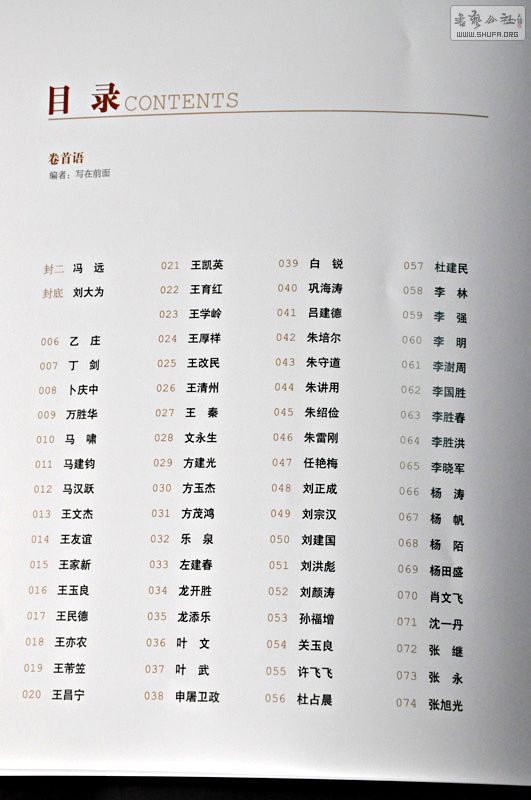 书艺公社
WWW.SHUFA.ORG
目 录 CONTENTS
卷首语
编者：写在前面
封二 冯 远
封底 刘大为
006 乙 庄
007 丁 剑
008 卜庆中
009 万胜华
010 马 啸
011 马建钧
012 马汉跃
013 王文杰
014 王友谊
015 王家新
016 王玉良
017 王民德
018 王亦农
019 王芾笠
020 王昌宁
021 王凯英
022 王育红
023 王学岭
024 王厚祥
025 王改民
026 王清州
027 王 秦
028 文永生
029 方建光
030 方玉杰
031 方茂鸿
032 乐 泉
033 左建春
034 龙开胜
035 龙添乐
036 叶 文
037 叶 武
038 申屠卫政
039 白 锐
040 巩海涛
041 吕建德
042 朱培尔
043 朱守道
044 朱讲用
045 朱绍俭
046 朱雷刚
047 任艳梅
048 刘正成
049 刘宗汉
050 刘建国
051 刘洪彪
052 刘颜涛
053 孙福增
054 关玉良
055 许飞飞
056 杜占晨
057 杜建民
058 李 林
059 李 强
060 李 明
061 李澍周
062 李国胜
063 李胜春
064 李胜洪
065 李晓军
066 杨 涛
067 杨 帆
068 杨 陌
069 杨田盛
070 肖文飞
071 沈一丹
072 张 继
073 张 永
074 张旭光